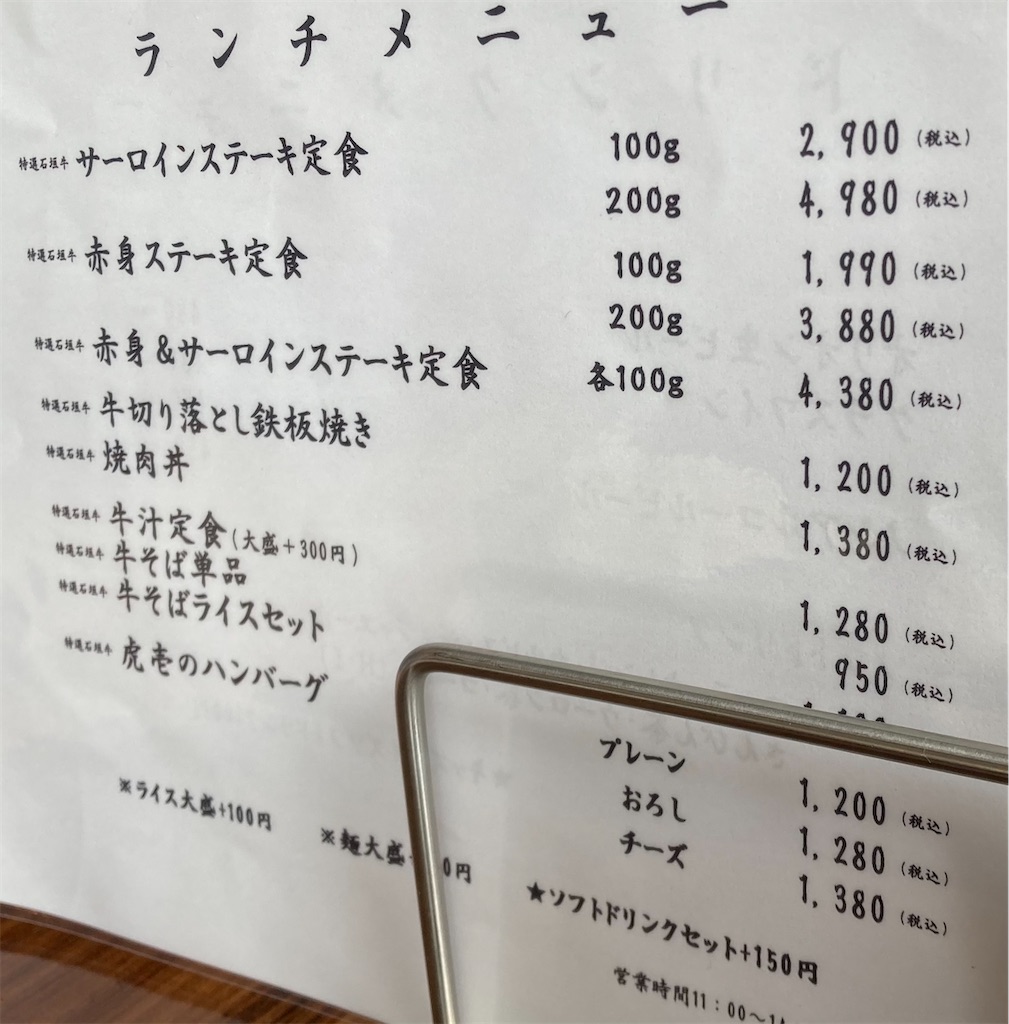 ランチメニュー
特選石垣牛 サーロインステーキ定食 100g 2,900 (税込)
200g 4,980 (税込)
特選石垣牛 赤身ステーキ定食 100g 1,990 (税込)
200g 3,880 (税込)
特選石垣牛 赤身&サーロインステーキ定食 各100g 4,380 (税込)
特選石垣牛 牛切り落とし鉄板焼き 1,200 (税込)
特選石垣牛 焼肉丼 1,380 (税込)
特選石垣牛 牛汁定食(大盛+300円) 1,280 (税込)
特選石垣牛 牛そば単品 950 (税込)
特選石垣牛 牛そばライスセット
特選石垣牛 虎壱のハンバーグ
プレーン 1,200 (税込)
おろし 1,280 (税込)
チーズ 1,380 (税込)
※ライス大盛+100円 ※麺大盛 0円
★ソフトドリンクセット+150円
営業時間11:00〜